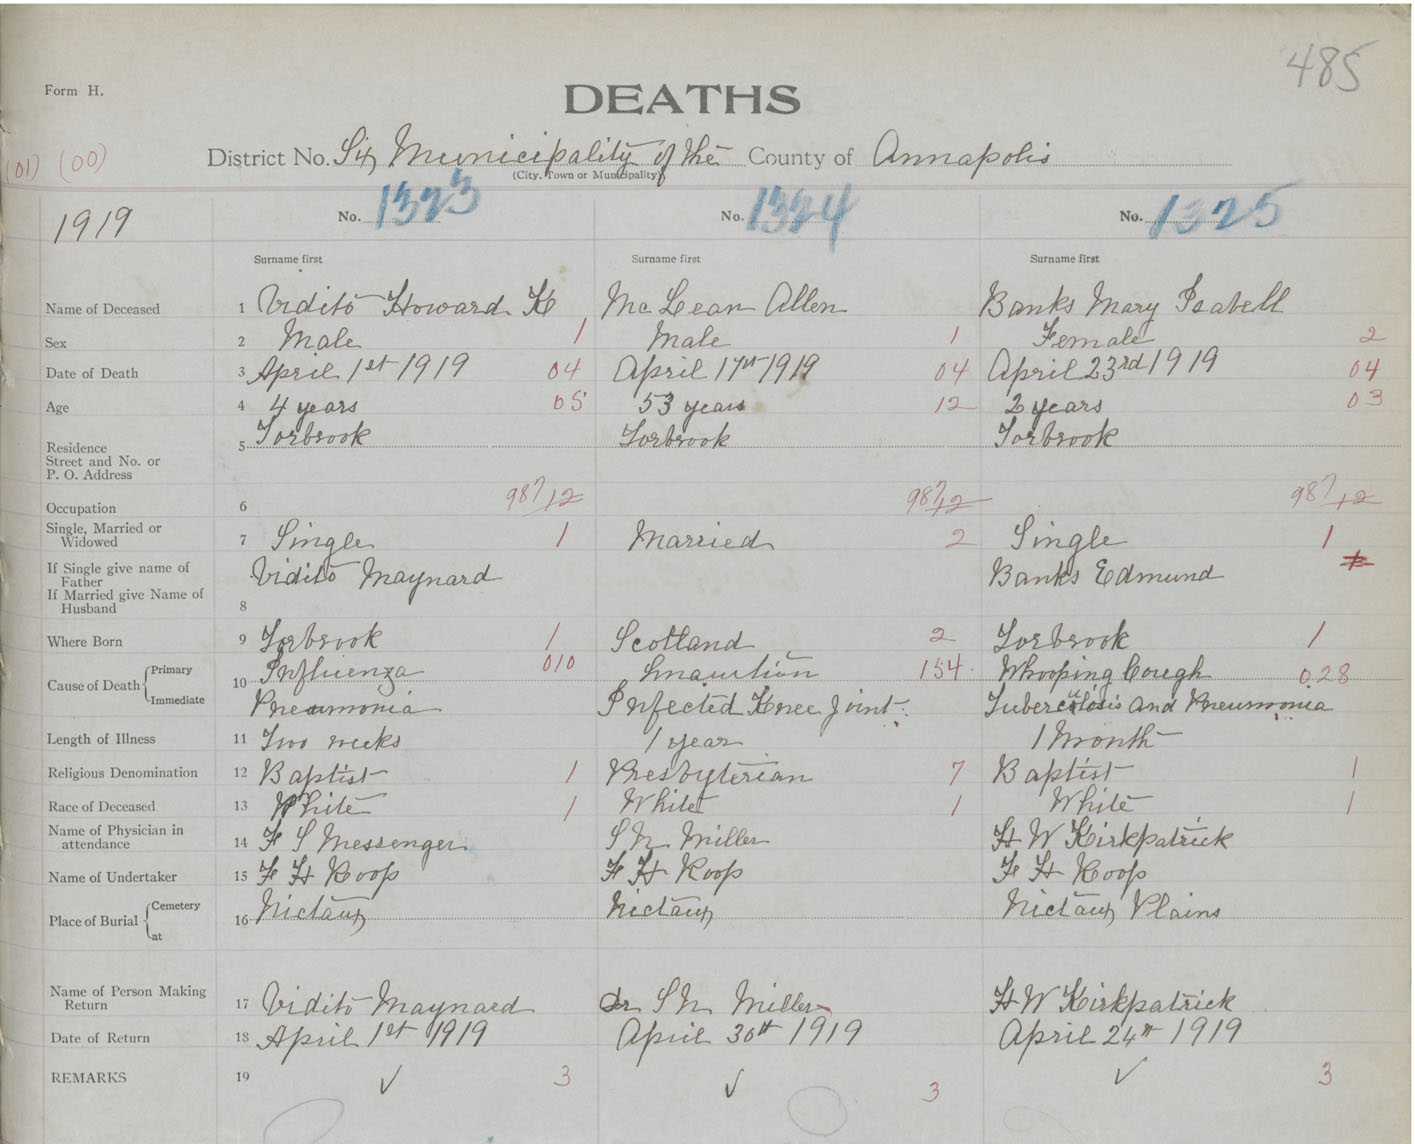 485
Form H.
DEATHS
(01) (00) District No. Six Municipality of the County of Annapolis
(City, Town or Municipality)
1919 No. 1323 No. 1324 No. 1325
Surname first Surname first Surname first
Name of Deceased 1 Vidito Howard K McLean Allen Banks Mary Isabell
Sex 2 Male 1 Male 1 Female 2
Date of Death 3 April 1st 1919 04 April 17st 1919 04 April 23rd 1919 04
Age 4 4 years 05 53 years 12 2 years 03
Residence Street and No. or P. O. Address 5 Torbrook Torbrook Torbrook
Occupation 6 987 12 987 12 987 12
Single, Married or Widowed 7 Single 1 Married 2 Single 1
If Single give name of Father Vidito Maynard Banks Edmund
If Married give Name of Husband 8
Where Born 9 Torbrook 1 Scotland 2 Torbrook 1
Cause of Death Primary 10 Influenza 010 154 Whooping Cough 028
Immediate Pneumonia Infected Knee Joint Tuberculosis and Pneumonia
Length of Illness 11 Two weeks 1 year 1 Month
Religious Denomination 12 Baptist 1 Presbyterian 7 Baptist 1
Race of Deceased 13 White 1 White 1 White 1
Name of Physician in attendance 14 F S Messenger S N Miller H W Kirkpatrick
Name of Undertaker 15 F H Roop F H Roop F H Roop
Place of Burial Cemetery at 16 Nictaux Nictaux Nictaux Plains
Name of Person Making Return 17 Vidito Maynard Dr S N Miller H W Kirkpatrick
Date of Return 18 April 1st 1919 April 30th 1919 April 24th 1919
REMARKS 19 ✓ 3 ✓ 3 ✓ 3